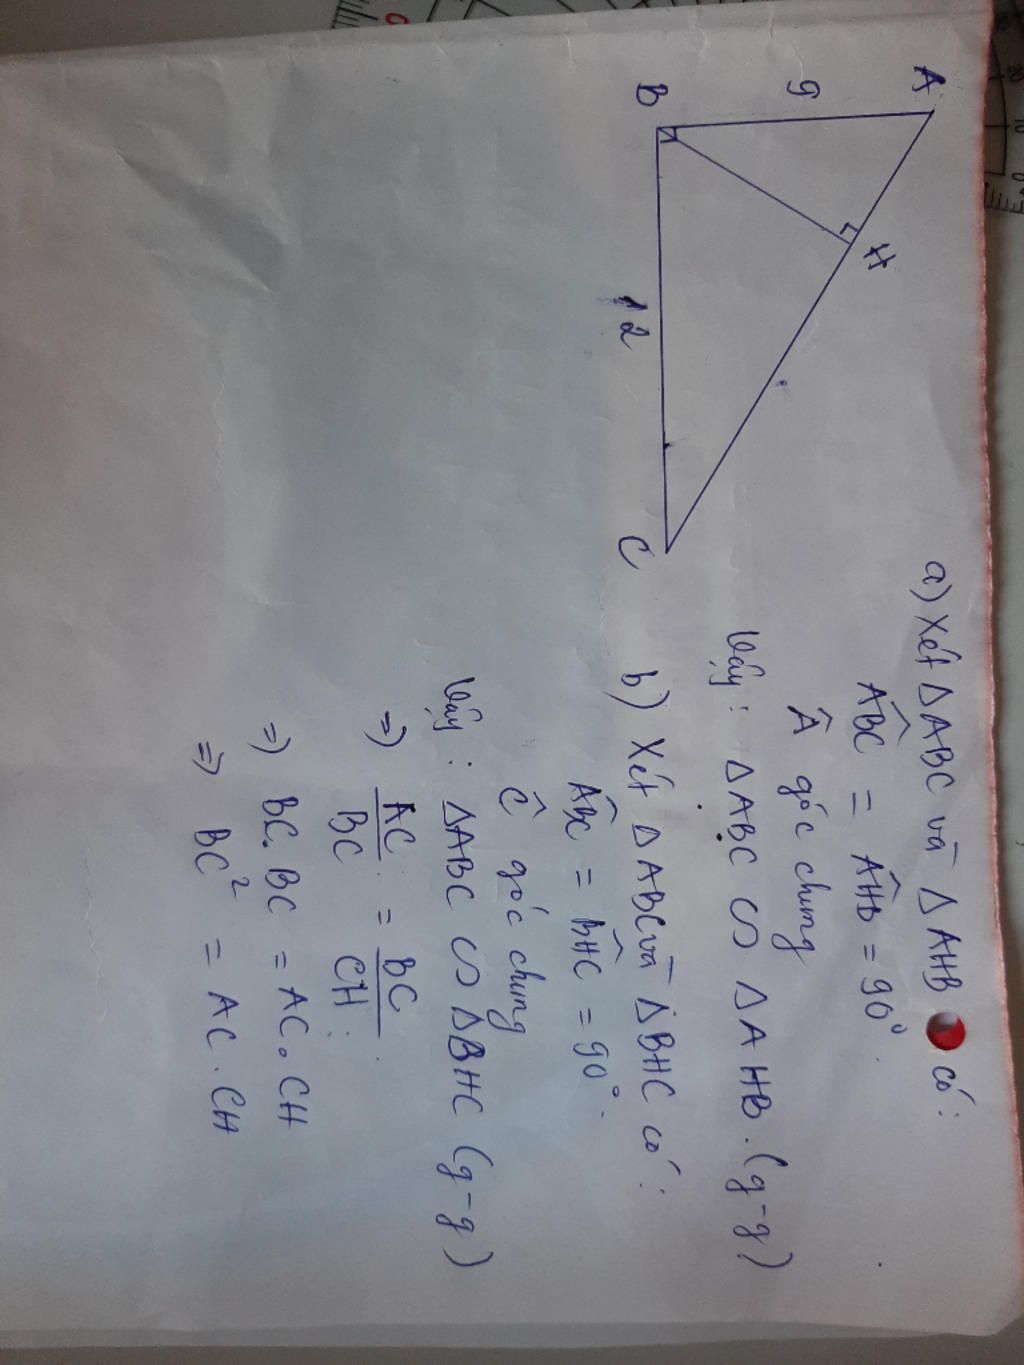 A
9
B
H
12
C
a) Xét ΔABC và ΔAHB có:
ABC^ = AHB^ = 90°.
Â góc chung
Vậy: ΔABC ∽ ΔAHB. (g-g)
b) Xét ΔABC và ΔBHC có:
ABC^ = BHC^ = 90°.
Ĉ góc chung
Vậy: ΔABC ∽ ΔBHC (g-g)
=> AC/BC = BC/CH.
=> BC.BC = AC.CH
=> BC² = AC.CH